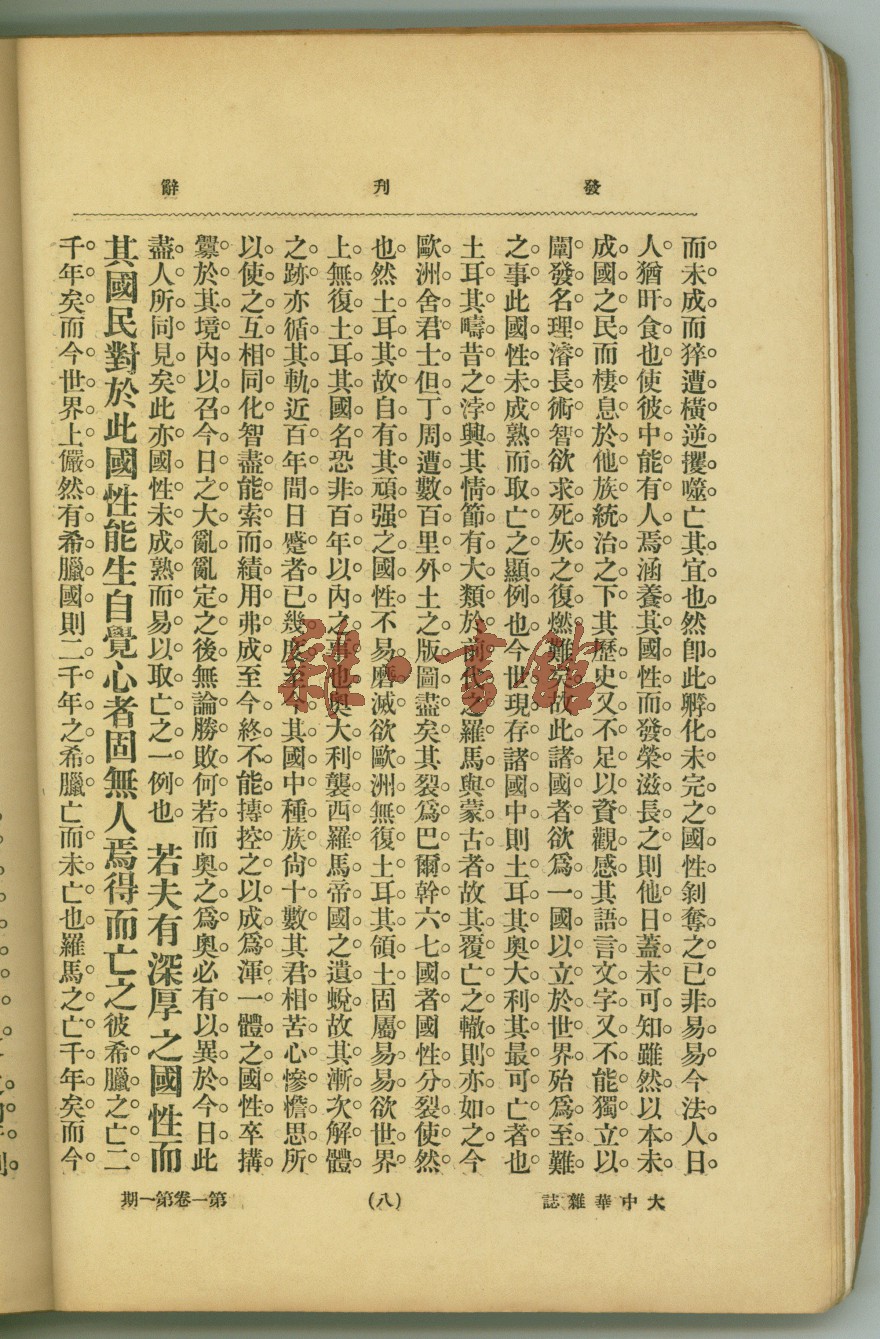 發刊辭
而未成而猝遭橫逆攫噬亡其宜也然卽此孵化未完之國性剝奪之已非易易今法人日
人猶旰食也使彼中能有人焉涵養其國性而發榮滋長之則他日蓋未可知雖然以本未
成國之民而棲息於他族統治之下其歷史又不足以資觀感其語言文字又不能獨立以
闡發名理濬長術智欲求死灰之復燃難矣故此諸國者欲爲一國以立於世界殆爲至難
之事此國性未成熟而取亡之顯例也今世現存諸國中則土耳其奧大利其最可亡者也
土耳其疇昔之浡興其情節有大類於前代之羅馬與蒙古者故其覆亡之轍則亦如之今
歐洲舍君士但丁周遭數百里外土之版圖盡矣其裂爲巴爾幹六七國者國性分裂使然
也然土耳其故自有其頑强之國性不易磨滅欲歐洲無復土耳其領土固屬易易欲世界
上無復土耳其國名恐非百年以內之事也奧大利襲西羅馬帝國之遺蛻故其漸次解體
之跡亦循其軌近百年間日蹙者已幾度至今其國中種族尙十數其君相苦心慘憺思所
以使之互相同化智盡能索而績用弗成至今終不能摶控之以成爲渾一體之國性卒搆
釁於其境內以召今日之大亂亂定之後無論勝敗何若而奧之爲奧必有以異於今日此
盡人所同見矣此亦國性未成熟而易以取亡之一例也若夫有深厚之國性而
其國民對於此國性能生自覺心者固無人焉得而亡之彼希臘之亡二
千年矣而今世界上儼然有希臘國則二千年之希臘亡而未亡也羅馬之亡千年矣而今
大中華雜誌
(八)
第一卷第一期
雜·書館